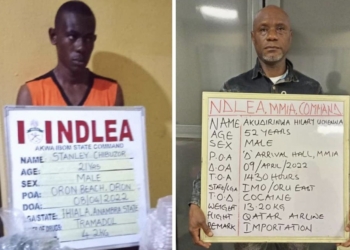 NDLEA
AKWA IBOM STATE COMMAND
NAME STANLEY CHIBUZOR
AGE 21 YRS
SEX MALE
POA ORON BEACH, ORON
DOA 08/04/2022
IHIALA ANAMBRA STATE
TRAMADOL
NDLEA, MMIA, COMMAND
NAME AKUDIRINWA HILARY
AGE 52 YEARS
SEX MALE
P.O.A 'D' ARRIVAL HALL, MMIA
D.O.A 09/APRIL/2022
TOA 1430 HOURS
IMO/ORU EAST
T.O.D COCAINE
WEIGHT 13.20KG
FLIGHT QATAR AIRLINE
REMARK IMPORTATION